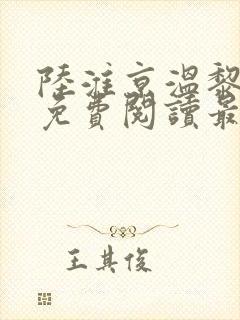 陸淮京溫黎
免費閱讀最
王其俊